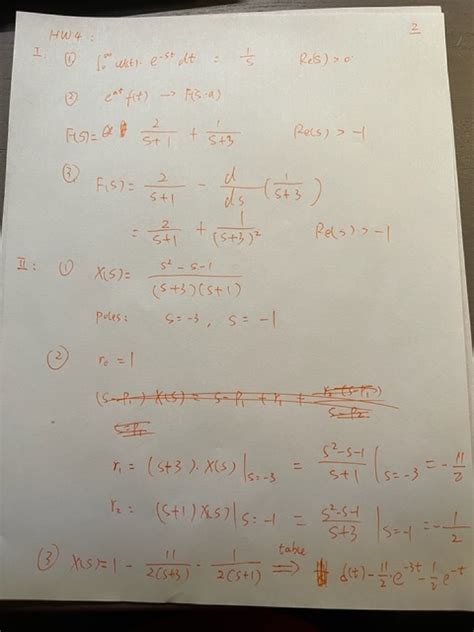 HW4: 2
I. ① ∫₀^∞ u(t)· e^{-st} dt = 1/s Re(s) > 0
② e^{at} f(t) → F(s-a)
F(s) = 2/(s+1) + 1/(s+3) Re(s) > -1
③ F(s) = 2/(s+1) - d/ds (1/(s+3))
= 2/(s+1) + 1/(s+3)² Re(s) > -1
II: ① X(s) = (s²-s-1)/((s+3)(s+1))
poles: s=-3, s=-1
② r₀ = 1
(s-p₁) X(s) = s-p₁ + r₁ + r₂(s-p₁)/(s-p₂)
s=p₁
r₁ = (s+3)·X(s)|s=-3 = (s²-s-1)/(s+1)|s=-3 = -11/2
r₂ = (s+1)X(s)|s=-1 = (s²-s-1)/(s+3)|s=-1 = -1/2
③ X(s) = 1 - 11/(2(s+3)) - 1/(2(s+1)) table ⟹ d(t) - 11/2·e^{-3t} - 1/2 e^{-t}